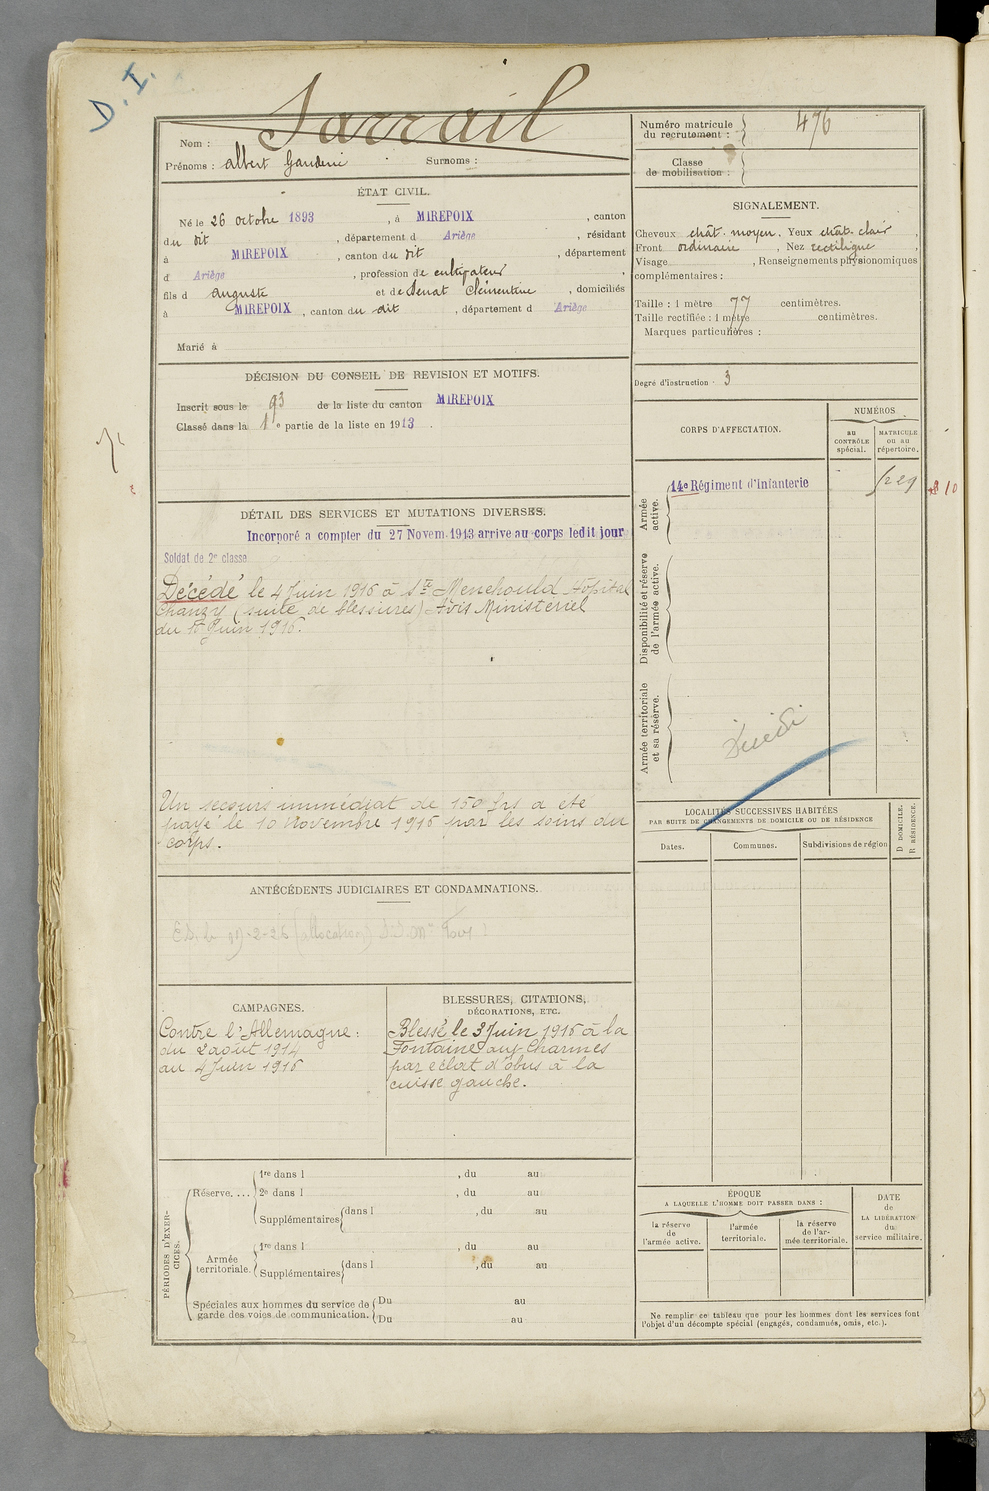 D. I.
Nom : Sarrail
Prénoms : Albert Gaudérie Surnoms :
Numéro matricule du recrutement : 476
Classe de mobilisation :
ÉTAT CIVIL.
Né le 26 octobre 1893, à MIREPOIX, canton
du dit, département d Ariège, résidant
à MIREPOIX, canton du dit, département
d Ariège, profession de cultivateur
fils d auguste et de Senat Clémentine, domiciliés
à MIREPOIX, canton du dit, département d Ariège
Marié à
SIGNALEMENT.
Cheveux chât. moyen. Yeux chât. clair,
Front ordinaire, Nez rectiligne,
Visage, Renseignements physionomiques
complémentaires :
Taille : 1 mètre 77 centimètres.
Taille rectifiée : 1 mètre centimètres.
Marques particulières :
Degré d'instruction 3
DÉCISION DU CONSEIL DE REVISION ET MOTIFS.
Inscrit sous le 93 de la liste du canton MIREPOIX
Classé dans la 1e partie de la liste en 1913.
DÉTAIL DES SERVICES ET MUTATIONS DIVERSES.
Incorporé a compter du 27 Novem. 1913 arrive au corps ledit jour
Soldat de 2e classe
Décédé le 4 Juin 1916 à Ste Menehould Hôpital
Chanzy (suite de blessures) Avis Ministeriel
du 10 Juin 1916.
Un secours immédiat de 150 frs a été
payé le 10 Novembre 1916 par les soins du
corps.
CORPS D'AFFECTATION.
NUMÉROS
au CONTRÔLE spécial.
MATRICULE ou au répertoire.
Armée active.
14e Régiment d'Infanterie
Disponibilité et réserve de l'armée active.
Armée territoriale et sa réserve.
LOCALITÉS SUCCESSIVES HABITÉES
PAR SUITE DE CHANGEMENTS DE DOMICILE OU DE RÉSIDENCE
Dates. Communes. Subdivisions de région
D DOMICILE.
R RÉSIDENCE.
ANTÉCÉDENTS JUDICIAIRES ET CONDAMNATIONS.
CAMPAGNES.
Contre l'Allemagne :
du 2 août 1914
au 4 Juin 1916
BLESSURES, CITATIONS,
DÉCORATIONS, ETC.
Blessé le 3 Juin 1916 à la
Fontaine aux Charmes
par éclat d'obus à la
cuisse gauche.
PÉRIODES D'EXERCICES.
Réserve....
1re dans l , du au
2e dans l , du au
Supplémentaires dans l , du au
au
Armée territoriale.
1re dans l , du au
Supplémentaires dans l , du au
Spéciales aux hommes du service de garde des voies de communication.
Du au
Du au
ÉPOQUE
A LAQUELLE L'HOMME DOIT PASSER DANS :
la réserve de l'armée active.
l'armée territoriale.
la réserve de l'armée territoriale.
DATE de LA LIBÉRATION du service militaire.
Ne remplir ce tableau que pour les hommes dont les services font
l'objet d'un décompte spécial (engagés, condamnés, omis, etc.).